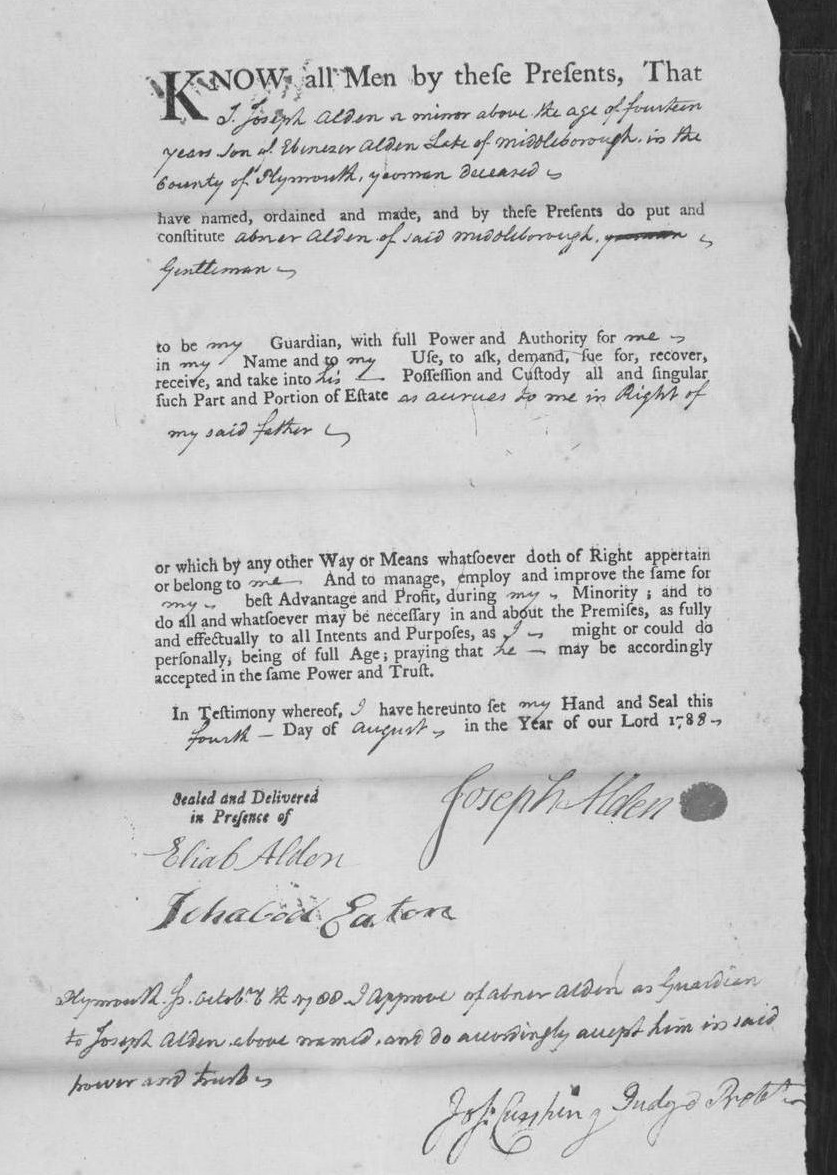 KNOW all Men by theſe Preſents, That
I Joseph Alden a minor above the age of fourteen
years son of Ebenezer Alden Late of middleborough. in the
County of Plymouth, yeoman deceased
have named, ordained and made, and by theſe Preſents do put and
conſtitute abner Alden of said middleborough, yeoman
Gentleman
to be my Guardian, with full Power and Authority for me
in my Name and to my Uſe, to aſk, demand, ſue for, recover,
receive, and take into his Poſſeſſion and Cuſtody all and ſingular
ſuch Part and Portion of Eſtate as acrues to me in Right of
my said father
or which by any other Way or Means whatſoever doth of Right appertain
or belong to me And to manage, employ and improve the ſame for
my beſt Advantage and Profit, during my Minority ; and to
do all and whatſoever may be neceſſary in and about the Premiſes, as fully
and effectually to all Intents and Purpoſes, as I might or could do
perſonally, being of full Age; praying that he — may be accordingly
accepted in the ſame Power and Truſt.
In Teſtimony whereof, I have hereunto ſet my Hand and Seal this
fourth — Day of august in the Year of our Lord 1788
Sealed and Delivered
in Preſence of
Joseph Alden
Eliab Alden
Ichabod Eaton
Plymouth. Ss. Octobr 6th 1788 I Approve of abner Alden as Guardian
to Joseph Alden above named, and do accordingly accept him in said
power and trust
Jos. Cushing Judge Probt